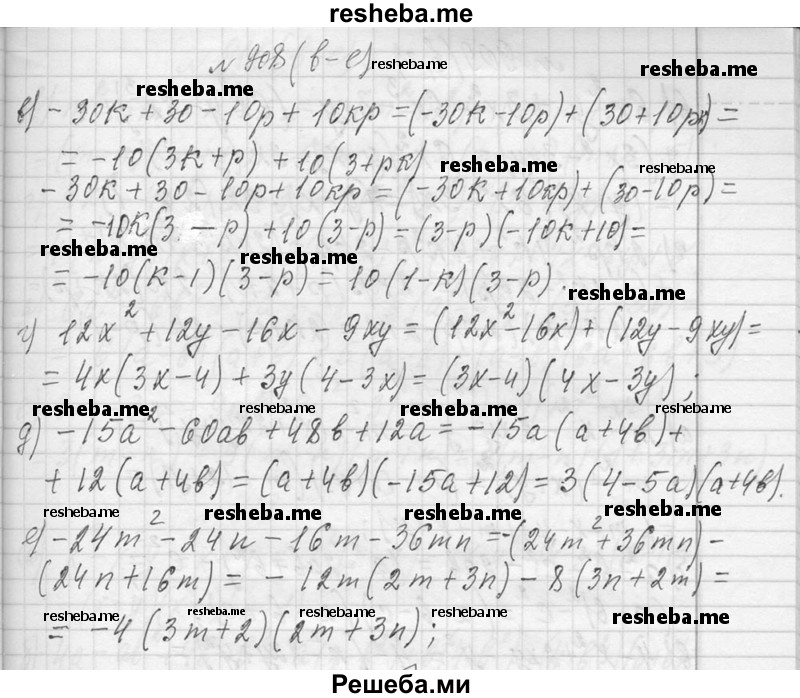 resheba.me
№ 908 (в-е) resheba.me
resheba.me resheba.me
в) - 30k + 30 - 10p + 10kp = (-30k - 10p) + (30 + 10pk) =
= -10(3k + p) + 10(3 + pk) resheba.me resheba.me
-30k + 30 - 10p + 10kp = (-30k + 10kp) + (30 - 10p) =
= -10k(3 - p) + 10(3 - p) = (3 - p)(-10k + 10) =
resheba.me resheba.me
= -10(k - 1)(3 - p) = 10(1 - k)(3 - p).
resheba.me
г) 12x² + 12y - 16x - 9xy = (12x² - 16x) + (12y - 9xy) =
= 4x(3x - 4) + 3y(4 - 3x) = (3x - 4)(4x - 3y);
resheba.me resheba.me resheba.me resheba.me
д) -15a² - 60ab + 48b + 12a = -15a(a + 4b) +
+ 12(a + 4b) = (a + 4b)(-15a + 12) = 3(4 - 5a)(a + 4b).
resheba.me resheba.me resheba.me resheba.me
е) -24m² - 24n - 16m - 36mn = -(24m² + 36mn) -
(24n + 16m) = - 12m(2m + 3n) - 8(3n + 2m) =
resheba.me resheba.me resheba.me resheba.me resheba.me
= -4(3m + 2)(2m + 3n);
Решеба.ми